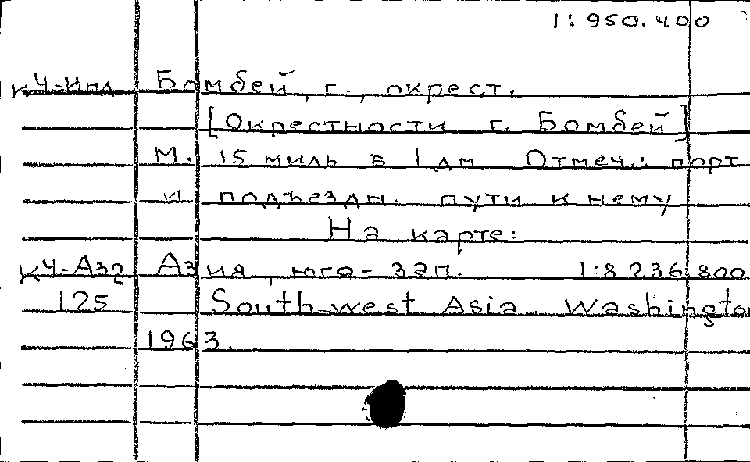 1:950.400
к4-Инд Бомбей, г., окрест.
[Окрестности г. Бомбей]
М. 15 миль в 1 дм Отмеч.: порт
и подъездн. пути к нему
На карте:
к4-Аз2 Азия, юго-зап. 1:8 236 800
125 South-west Asia. Washington
1963.